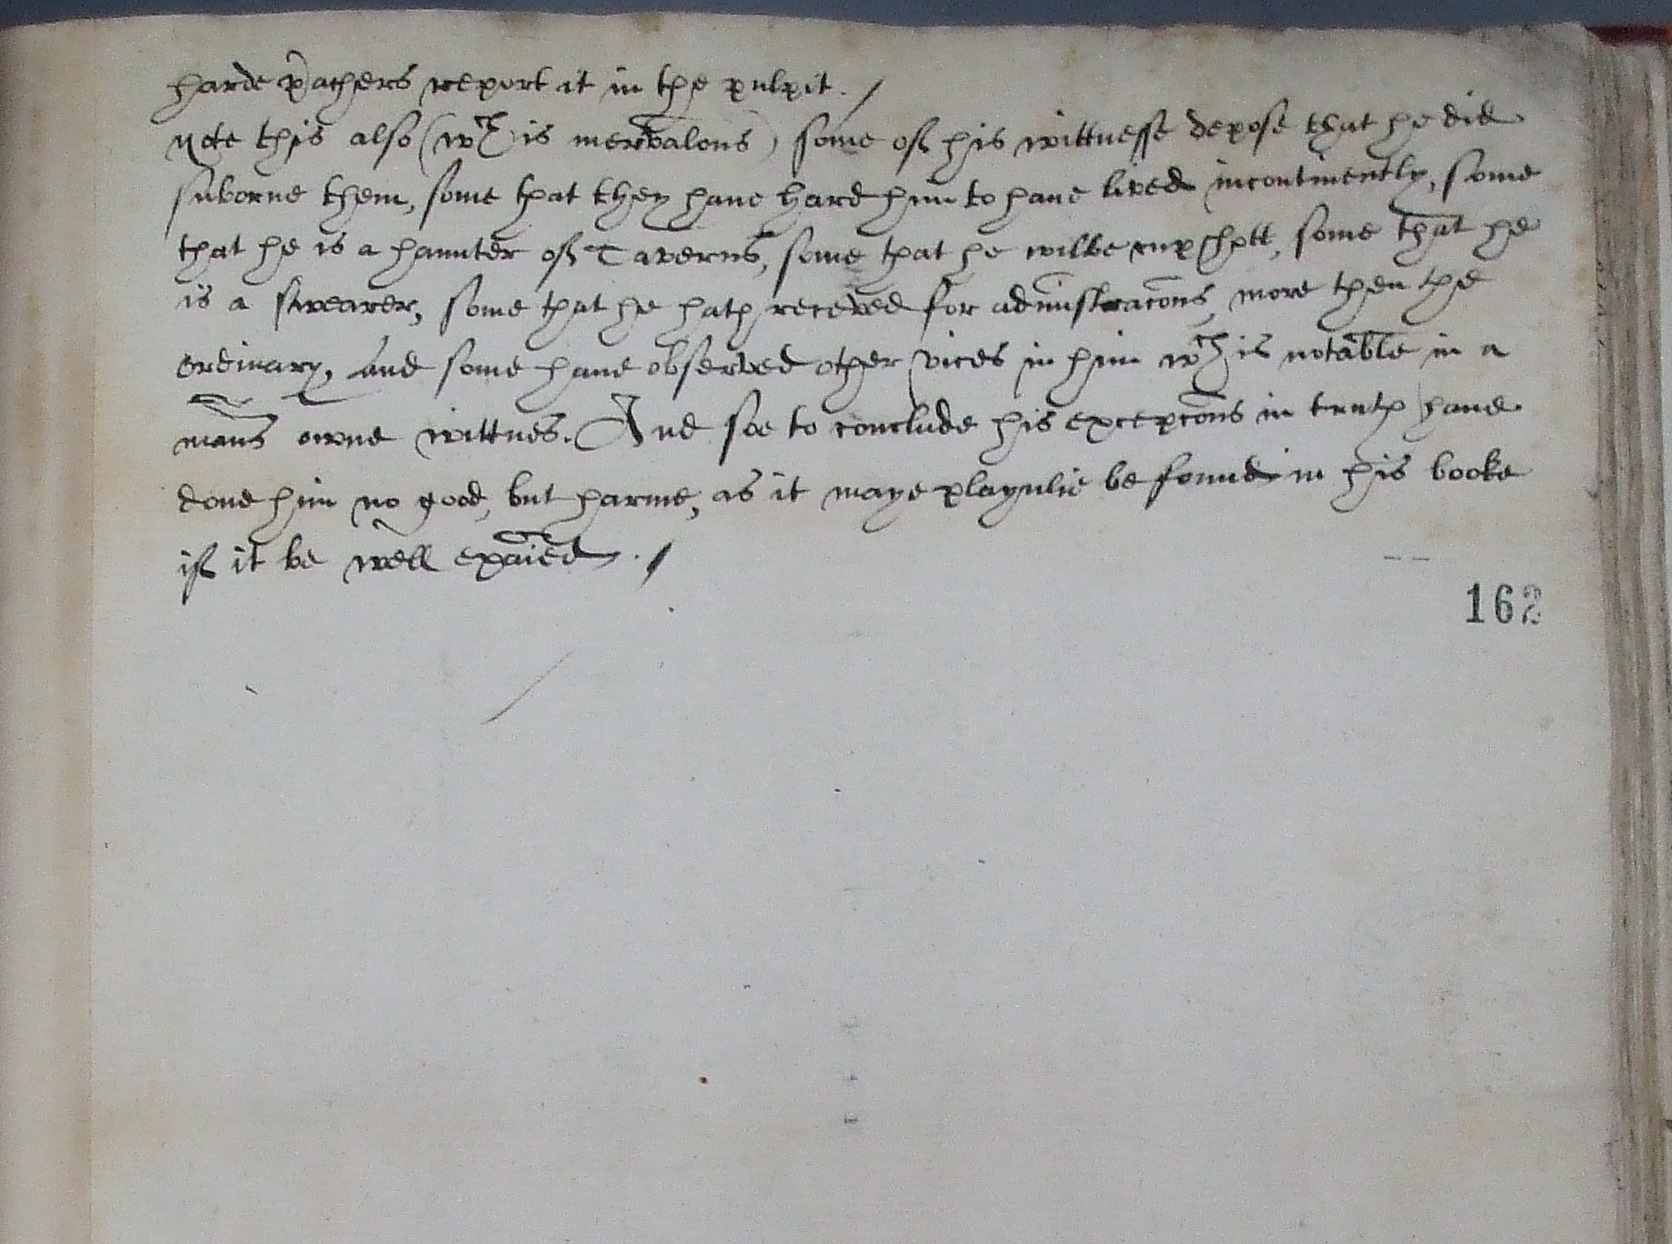 harde p̃achers report it in the pulpit. /
note this also (wch is mervalous) some of his wittnesse depose that he did
suborne them, some that they haue hard him to haue lived incontinently, some
that he is a haunter of Taverns, some that he wilbe cupshott, some that he
is a swearer, some that he hath receved for admīstracõns, more then the
ordinary, And some haue observed other vices in him wch is notable in a
mans owne wittnes. And soe to conclude his excepcõns in truth haue
done him no good, but harme, as it maye playnlie be found in his booke
if it be well exaĩed. /
162